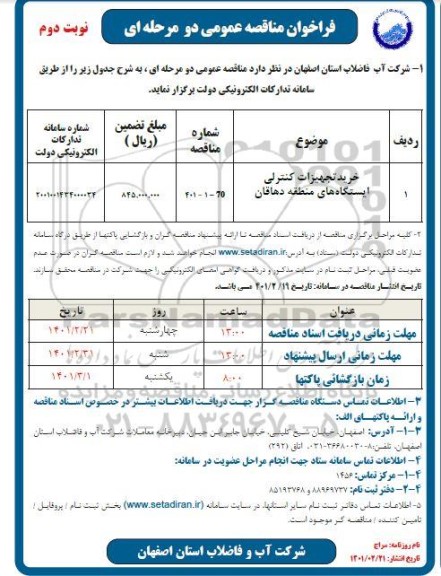 فراخوان مناقصه عمومی دو مرحله ای
نوبت دوم
۱- شرکت آب فاضلاب استان اصفهان در نظر دارد مناقصه عمومی دو مرحله ای ، به شرح جدول زیر را از طریق
سامانه تدارکات الکترونیکی دولت برگزار نماید.
ردیف
موضوع
شماره مناقصه
مبلغ تضمین (ریال )
شماره سامانه تدارکات الکترونیکی دولت
۱
خرید تجهیزات کنترلی ایستگاه‌های منطقه دهاقان
۴۰۱-۱-70
۸۴۵,۰۰۰,۰۰۰
۲۰۰۱۰۰۱۴۳۴۰۰۰۰۲۴
۲- کلیه مراحل برگزاری مناقصه از دریافت اسناد مناقصه تا ارائه پیشنهاد مناقصه گران و بازگشایی پاکتها از طریق درگاه سامانه
تدارکات الکترونیکی دولت (ستاد) به آدرس www.setadiran.ir انجام خواهد شد و لازم است مناقصه گران در صورت عدم
عضویت قبلی، مراحل ثبت نام در سایت مذکور و دریافت گواهی امضای الکترونیکی را جهت شرکت در مناقصه محقق سازند.
تاریخ انتشار مناقصه در سامانه: تاریخ ۱۴۰۱/۲/۱۹ می باشد.
عنوان
ساعت
روز
تاریخ
مهلت زمانی دریافت اسناد مناقصه
۱۳:۰۰
چهارشنبه
مهلت زمانی ارسال پیشنهاد
۱۳:۰۰
شنبه
۱۴۰۱/۲/۳۱
زمان بازگشائی پاکتها
۸:۰۰
یکشنبه
۱۴۰۱/۳/۱
۳- اطلاعات تماس دستگاه مناقصه گزار جهت دریافت اطلاعات بیشتر در خصوص اسناد مناقصه
و ارائه پاکتهای الف:
۳-۱- آدرس: اصفهان، خیابان شیخ کلینی، خیابان جابر ابن حیان، دبیرخانه معاملات شرکت آب و فاضلاب استان
اصفهان، تلفن: ۸-۰۳۱-۳۶۶۸۰۰۳۰، اتاق (۲۹۲)
۴- اطلاعات تماس سامانه ستاد جهت انجام مراحل عضویت در سامانه:
۴-۱- مرکز تماس: ۱۴۵۶
۴-۲- دفتر ثبت نام: ۸۸۹۶۹۷۳۷ و ۸۵۱۹۳۷۶۸
۵- اطلاعات تماس دفاتر ثبت نام سایر استانها، در سایت سامانه (www.setadiran.ir) بخش ثبت نام / پروفایل /
تامین کننده / مناقصه گر موجود است.
شرکت آب و فاضلاب استان اصفهان
نام روزنامه: سراج
تاریخ انتشار: ۱۴۰۱/۰۲/۲۱